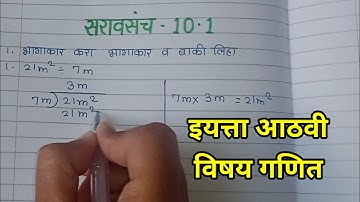 सरावसंच - 10.1
1. भागाकार करा भागाकार व बाकी लिहा
1. 21m² ÷ 7m
3m
7m ) 21m²
21m²
7m × 3m = 21m²
इयत्ता आठवी
विषय गणित